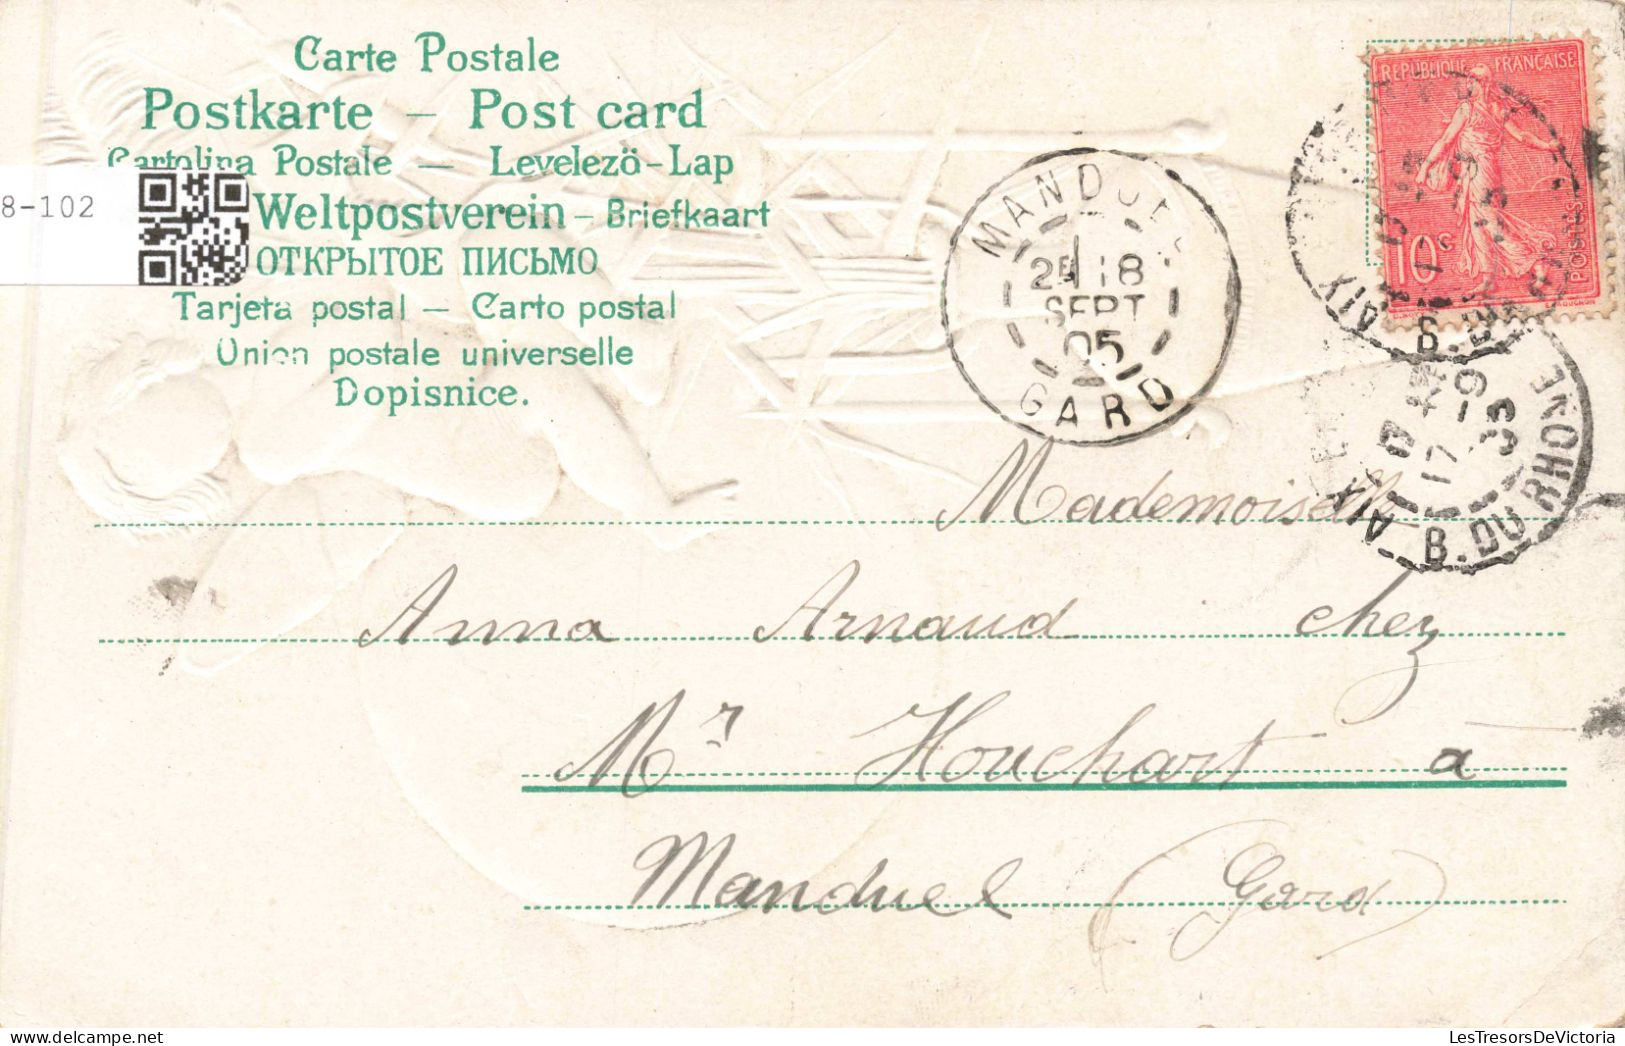 Carte Postale
Postkarte – Post card
Cartolina Postale – Levelezö-Lap
8-102
Weltpostverein – Briefkaart
ОТКРЫТОЕ ПИСЬМО
Tarjeta postal – Carto postal
Union postale universelle
Dopisnice.
REPUBLIQUE FRANÇAISE
10c
POSTES
MANDUEL
2E 18
SEPT
05
GARD
AIX
B. DU RHONE
AIX
17 -9
05
B. DU RHONE
Mademoiselle
Anna Arnaud chez
Mr Houchart à
Manduel (Gard)
LesTresorsDeVictoria